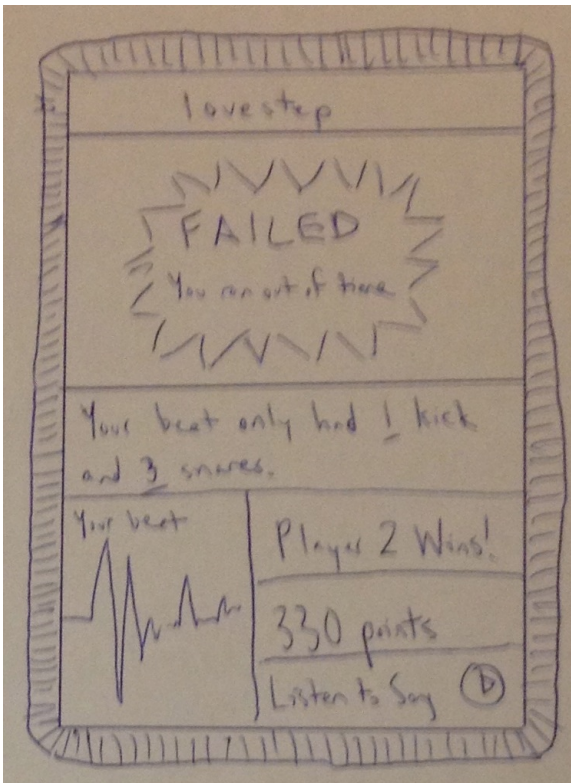 lovestep
FAILED
You ran out of time
Your beat only had 1 kick
and 3 snares.
Your beat
Player 2 Wins!
330 points
Listen to Song